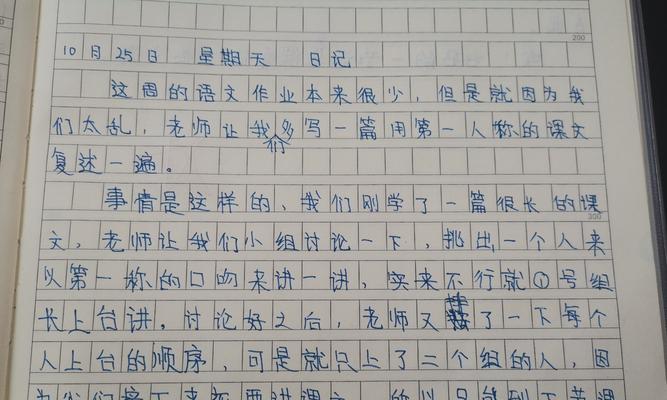 200
10月25日 星期天 日记
这周的语文作业本来很少,但是就因为我
们太乱,老师让我们多写一篇用第一人称的课文
复述一遍。
事情是这样的、我们刚学了一篇很长的课
300
文,老师让我们小组讨论一下,挑出一个人来
以第一称的口吻来讲一讲,实来不行就①号组
长上台讲。讨论好之后,老师又排了一下每个
人上台的顺序,可是就只上了二个组的人,因
为我们接下来还要讲课文,所以只能到下节课